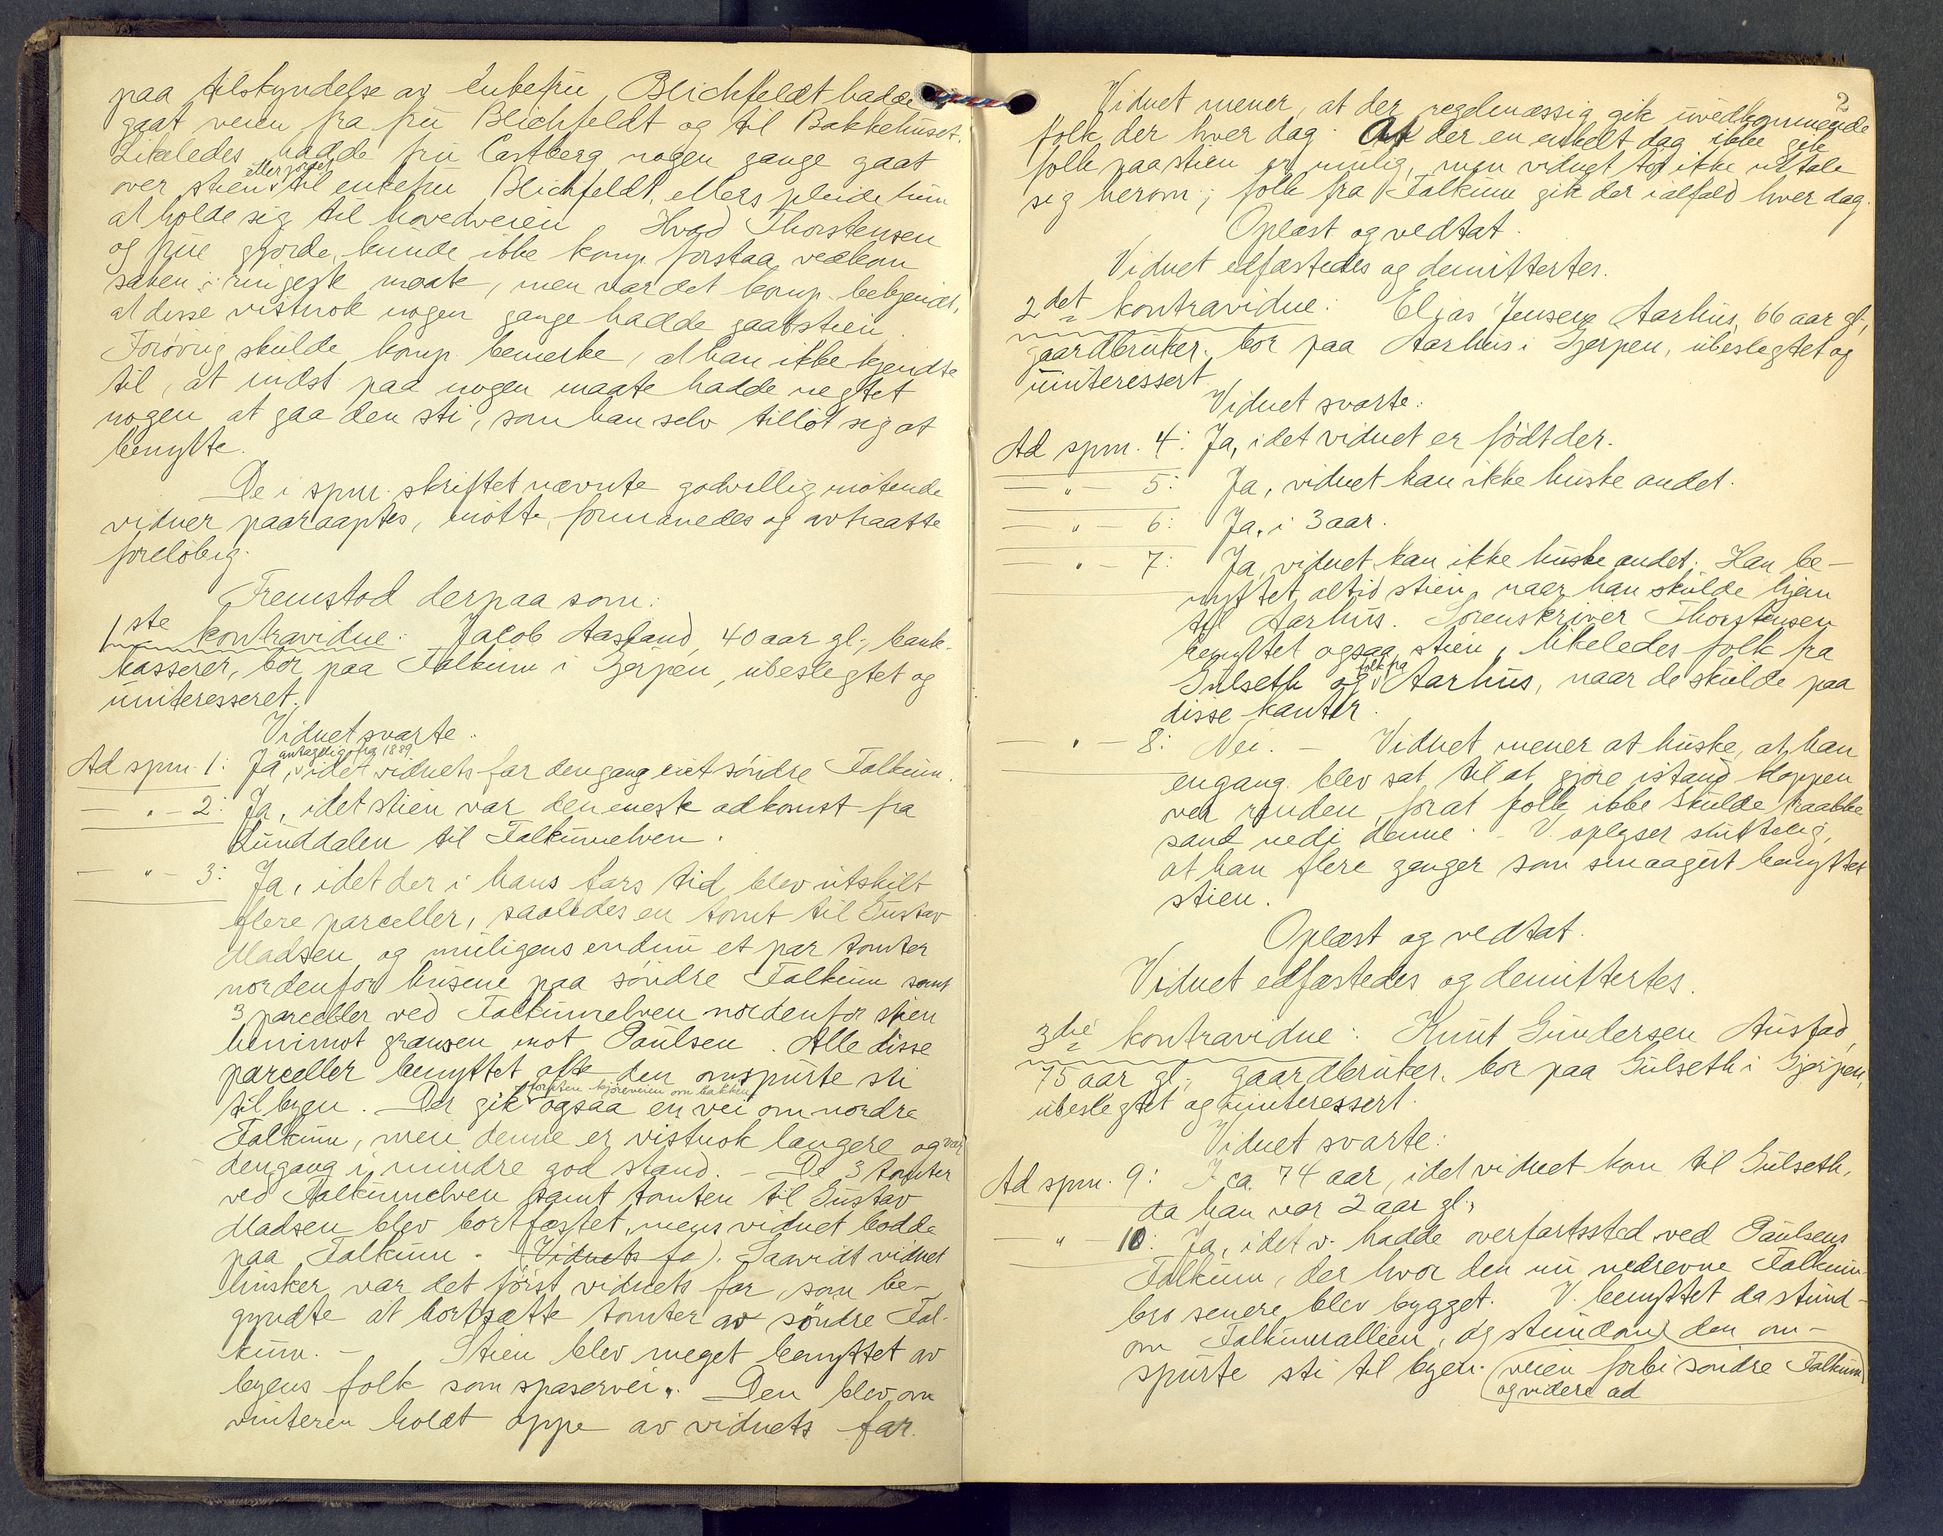 paa tilskyndelse av enkefru Blichfeldt hadde
gaat veien fra fru Blichfeldt og til Bakkehuset.
Likeledes hadde fru Castberg nogen gange gaat
eller jordet
over stien til enkefru Blichfeldt, ellers pleide hun
at holde sig til hovedveien Hvad Thorstensen
og frue gjorde, kunde ikke komp. forstaa vedkom
saken i ringeste maate, men var det komp. bekjendt,
at disse vistnok nogen gange hadde gaat stien.
Forøvrig skulde komp. bemerke, at han ikke kjendte
til, at indst. paa nogen maate hadde negtet
nogen at gaa den sti, som han selv tillot sig at
benytte.
De i spm. skriftet nævnte godvillig møtende
vidner paaraaptes, møtte, formanedes og avtraatte
foreløbig.
Fremstod derpaa som:
1ste kontravidne: Jacob Aasland, 40 aar gl., bank-
kasserer, bor paa Falkum i Gjerpen, ubeslegtet og
uinteresseret.
Vidnet svarte:
antagelig fra 1889
Ad spm. 1: Ja, idet vidnets far dengang eiet søndre Falkum.
— " — 2: Ja, idet stien var den eneste adkomst fra
Lunddalen til Falkumelven.
— " — 3: Ja, idet der i hans fars tid blev utskilt
flere parceller, saaledes en tomt til Gustav
Madsen og muligens endnu et par tomter
nordenfor husene paa søndre Falkum samt
3 parceller ved Falkumelven nordenfor stien
henimot grænsen mot Paulsen. Alle disse
parceller benyttet ofte den omspurte sti
foruten kjøreveien om bakken
til byen. Der gik ogsaa en vei om nordre
Falkum, men denne er vistnok længere og var
dengang i mindre god stand. De 3 tomter
ved Falkumelven samt tomten til Gustav
Madsen blev bortfæstet, mens vidnet bodde
paa Falkum. (Vidnets fa). Saavidt vidnet
husker var det først vidnets far, som be-
gyndte at bortsætte tomter av søndre Fal-
kum. — Stien blev meget benyttet av
byens folk som spaservei. Den blev om
vinteren holdt oppe av vidnets far.
2
Vidnet mener, at der regelmæssig gik uvedkommende
folk der hver dag. At der en enkelt dag ikke gik
folk paa stien er mulig, men vidnet tør ikke uttale
sig herom; folk fra Falkum gik der ialfald hver dag.
Oplæst og vedtat.
Vidnet edfæstedes og demittertes.
2det kontravidne: Eljas Jensen Aarhus, 66 aar gl.,
gaardbruker, bor paa Aarhus i Gjerpen, ubeslegtet og
uinteressert
Vidnet svarte:
Ad spm. 4: Ja, idet vidnet er født der.
— " — 5: Ja, vidnet kan ikke huske andet.
— " — 6: Ja, i 3 aar.
— " — 7: Ja, vidnet kan ikke huske andet. Han be-
nyttet altid stien, naar han skulde hjem
til Aarhus. Sorenskriver Thorstensen
benyttet ogsaa stien, likeledes folk fra
folk fra
Gulseth og Aarhus, naar de skulde paa
disse kanter.
— " — 8: Nei. — Vidnet mener at huske, at han
engang blev sat til at gjøre istand kloppen
over renden, forat folk ikke skulde traakke
sand nedi denne. — V. oplyser sluttelig,
at han flere ganger som smaagut benyttet
stien.
Oplæst og vedtat.
Vidnet edfæstedes og demittertes.
3die kontravidne: Knut Gundersen Austad,
75 aar gl., gaardbruker, bor paa Gulseth i Gjerpen,
ubeslegtet og uinteressert.
Vidnet svarte:
Ad spm. 9: I ca. 74 aar, idet vidnet kom til Gulseth,
da han var 2 aar gl.,
— " — 10: Ja, idet v. hadde overfartssted ved Paulsens
Falkum, der hvor den nu nedrevne Falkum-
bro senere blev bygget. V. benyttet da stund-
om Falkumalleen, og stundom den om-
spurte sti til byen. (veien forbi søndre Falkum
og videre ad